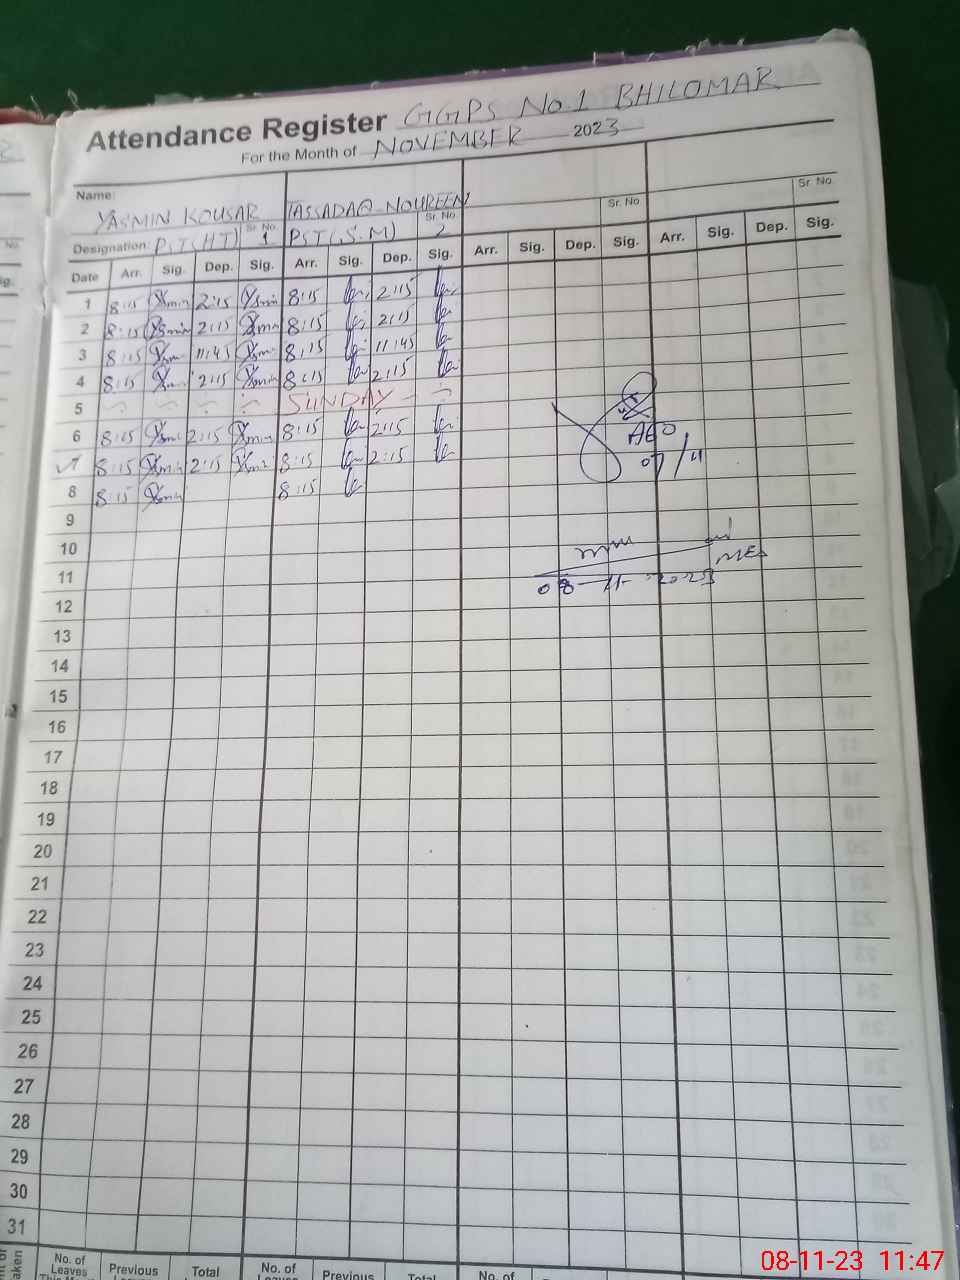 Attendance Register GGPS No.1 BHILOMAR
For the Month of NOVEMBER 2023
Name: YASMIN KOUSAR TASSADAQ NOUREEN
Sr. No. 1 Sr. No. 2 Sr. No. Sr. No.
Designation: PST(HT) PST(S.M)
Date Arr. Sig. Dep. Sig. Arr. Sig. Dep. Sig. Arr. Sig. Dep. Sig. Arr. Sig. Dep. Sig.
1 8:15 Yasmin 2:15 Yasmin 8:15 2:15
2 8:15 Yasmin 2:15 Yasmin 8:15 2:15
3 8:15 Yasmin 11:45 Yasmin 8:15 11:45
4 8:15 Yasmin 2:15 Yasmin 8:15 2:15
5 SUNDAY
6 8:15 Yasmin 2:15 Yasmin 8:15 2:15
7 8:15 Yasmin 2:15 Yasmin 8:15 2:15
8 8:15 Yasmin 8:15
AEO
07/11
9
10
MEA
11
08-11-2023
12
13
14
15
16
17
18
19
20
21
22
23
24
25
26
27
28
29
30
31
No. of Leaves Previous Total No. of Leaves Previous Total No. of
08-11-23 11:47